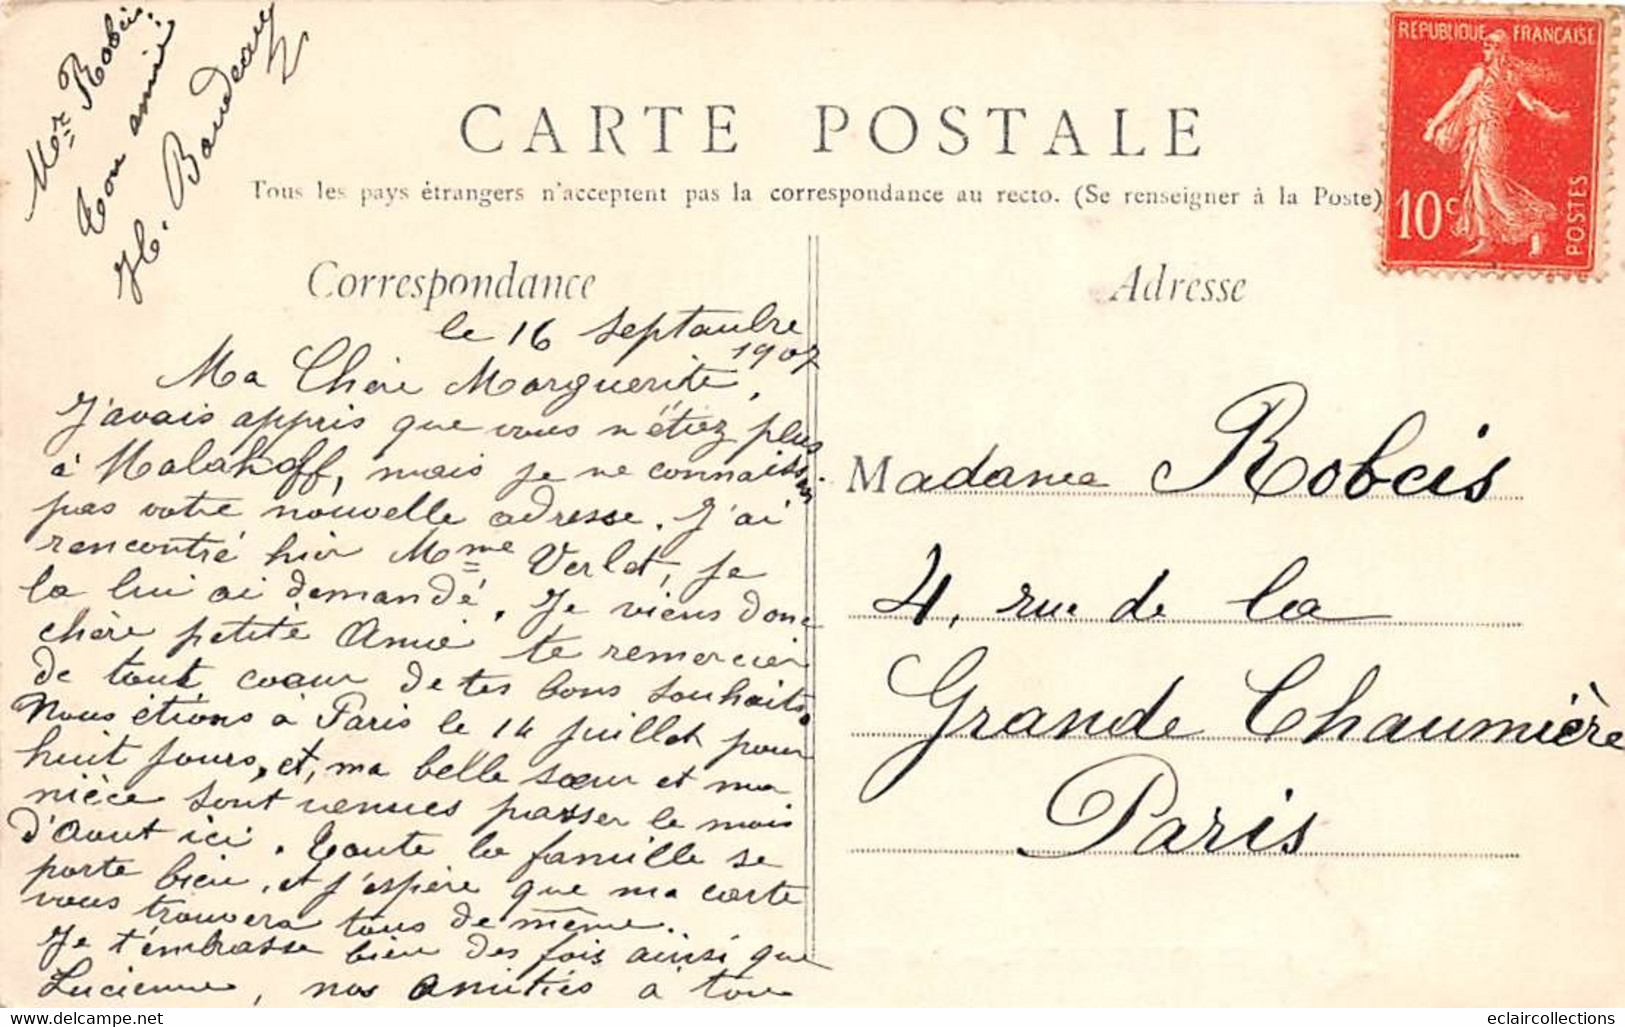 Mr Robcis.
Ton amie
H. Baudeau
CARTE POSTALE
Tous les pays étrangers n'acceptent pas la correspondance au recto. (Se renseigner à la Poste)
REPUBLIQUE FRANÇAISE
10c
POSTES
Correspondance
le 16 Septambre
1907
Ma Chère Marguerite,
J'avais appris que vous n'étiez plus
à Malakoff, mais je ne connaissais
pas votre nouvelle adresse. J'ai
rencontré hier Mme Verlet, je
la lui ai demandé. Je viens donc
chère petite Amie te remercier
de tout coeur de tes bons souhaits.
Nous étions à Paris le 14 juillet pour
huit jours, et, ma belle sœur et ma
nièce sont venues passer le mois
d'Aout ici. Toute la famille se
porte bien, et j'espère que ma carte
vous trouvera tous de même.
Je t'embrasse bien des fois ainsi que
Lucienne, nos amitiés à ton
Adresse
Madame Robcis
4, rue de la
Grande Chaumière
Paris
delcampe.net
eclaircollections